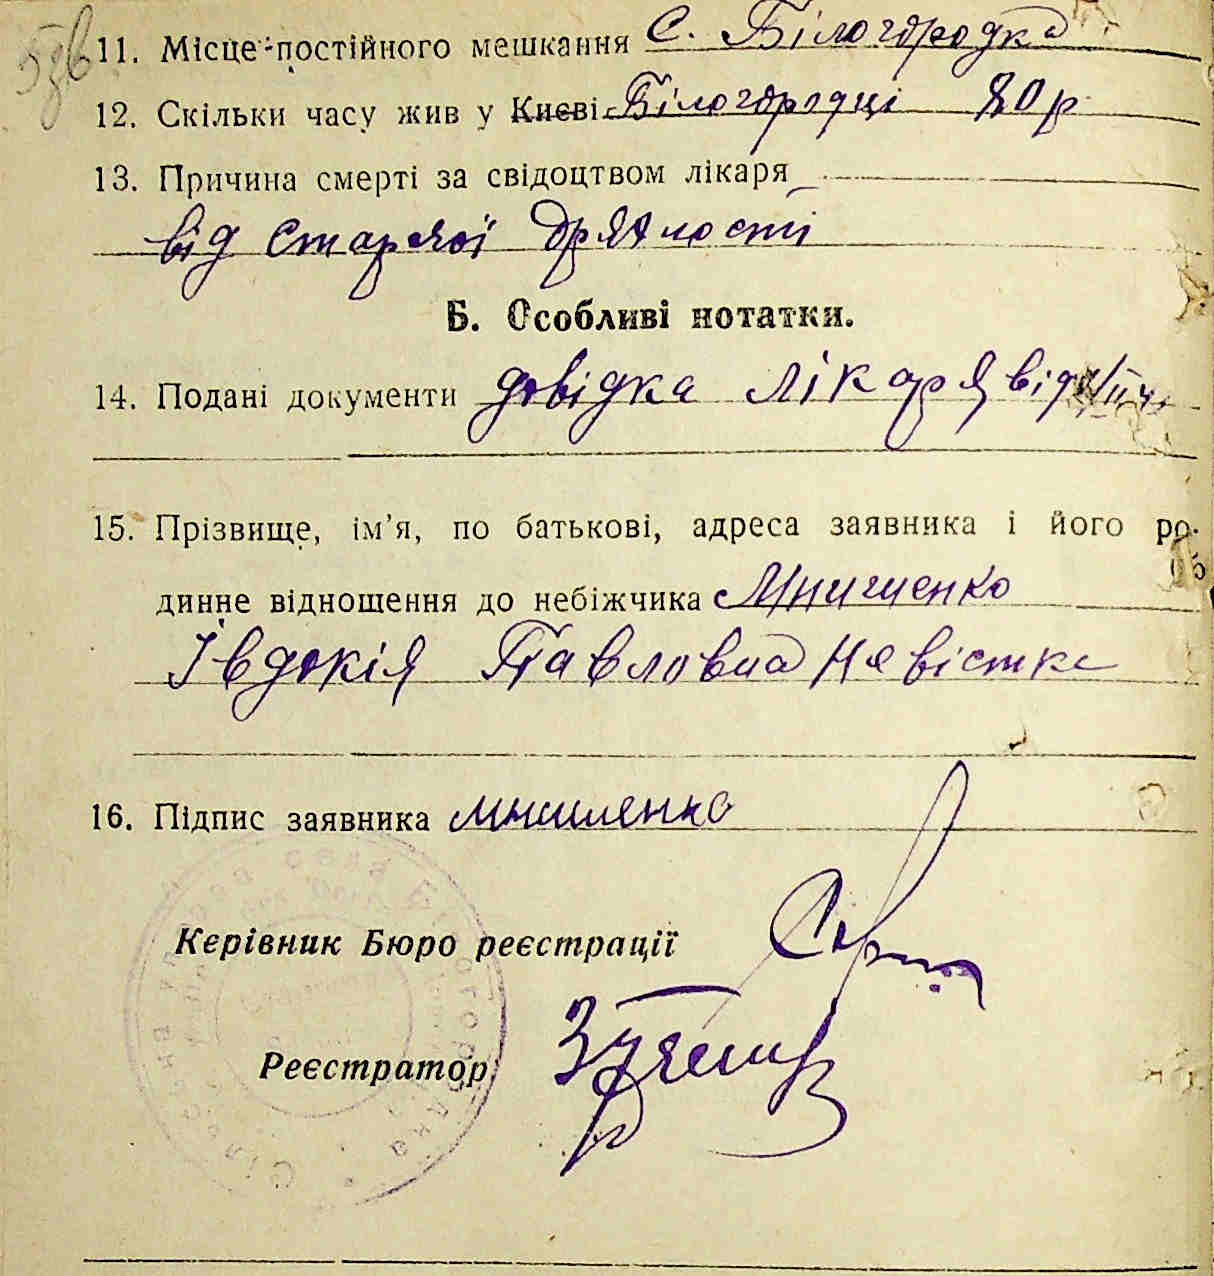 11. Місце постійного мешкання с. Білогородка
12. Скільки часу жив у Києві Білогородці 80 р
13. Причина смерті за свідоцтвом лікаря
від старчої дряхлості
Б. Особливі нотатки.
14. Подані документи довідка лікаря від
15. Прізвище, ім’я, по батькові, адреса заявника і його ро-
динне відношення до небіжчика
Івдокія Павловна невістка
16. Підпис заявника
Керівник Бюро реєстрації
Реєстратор